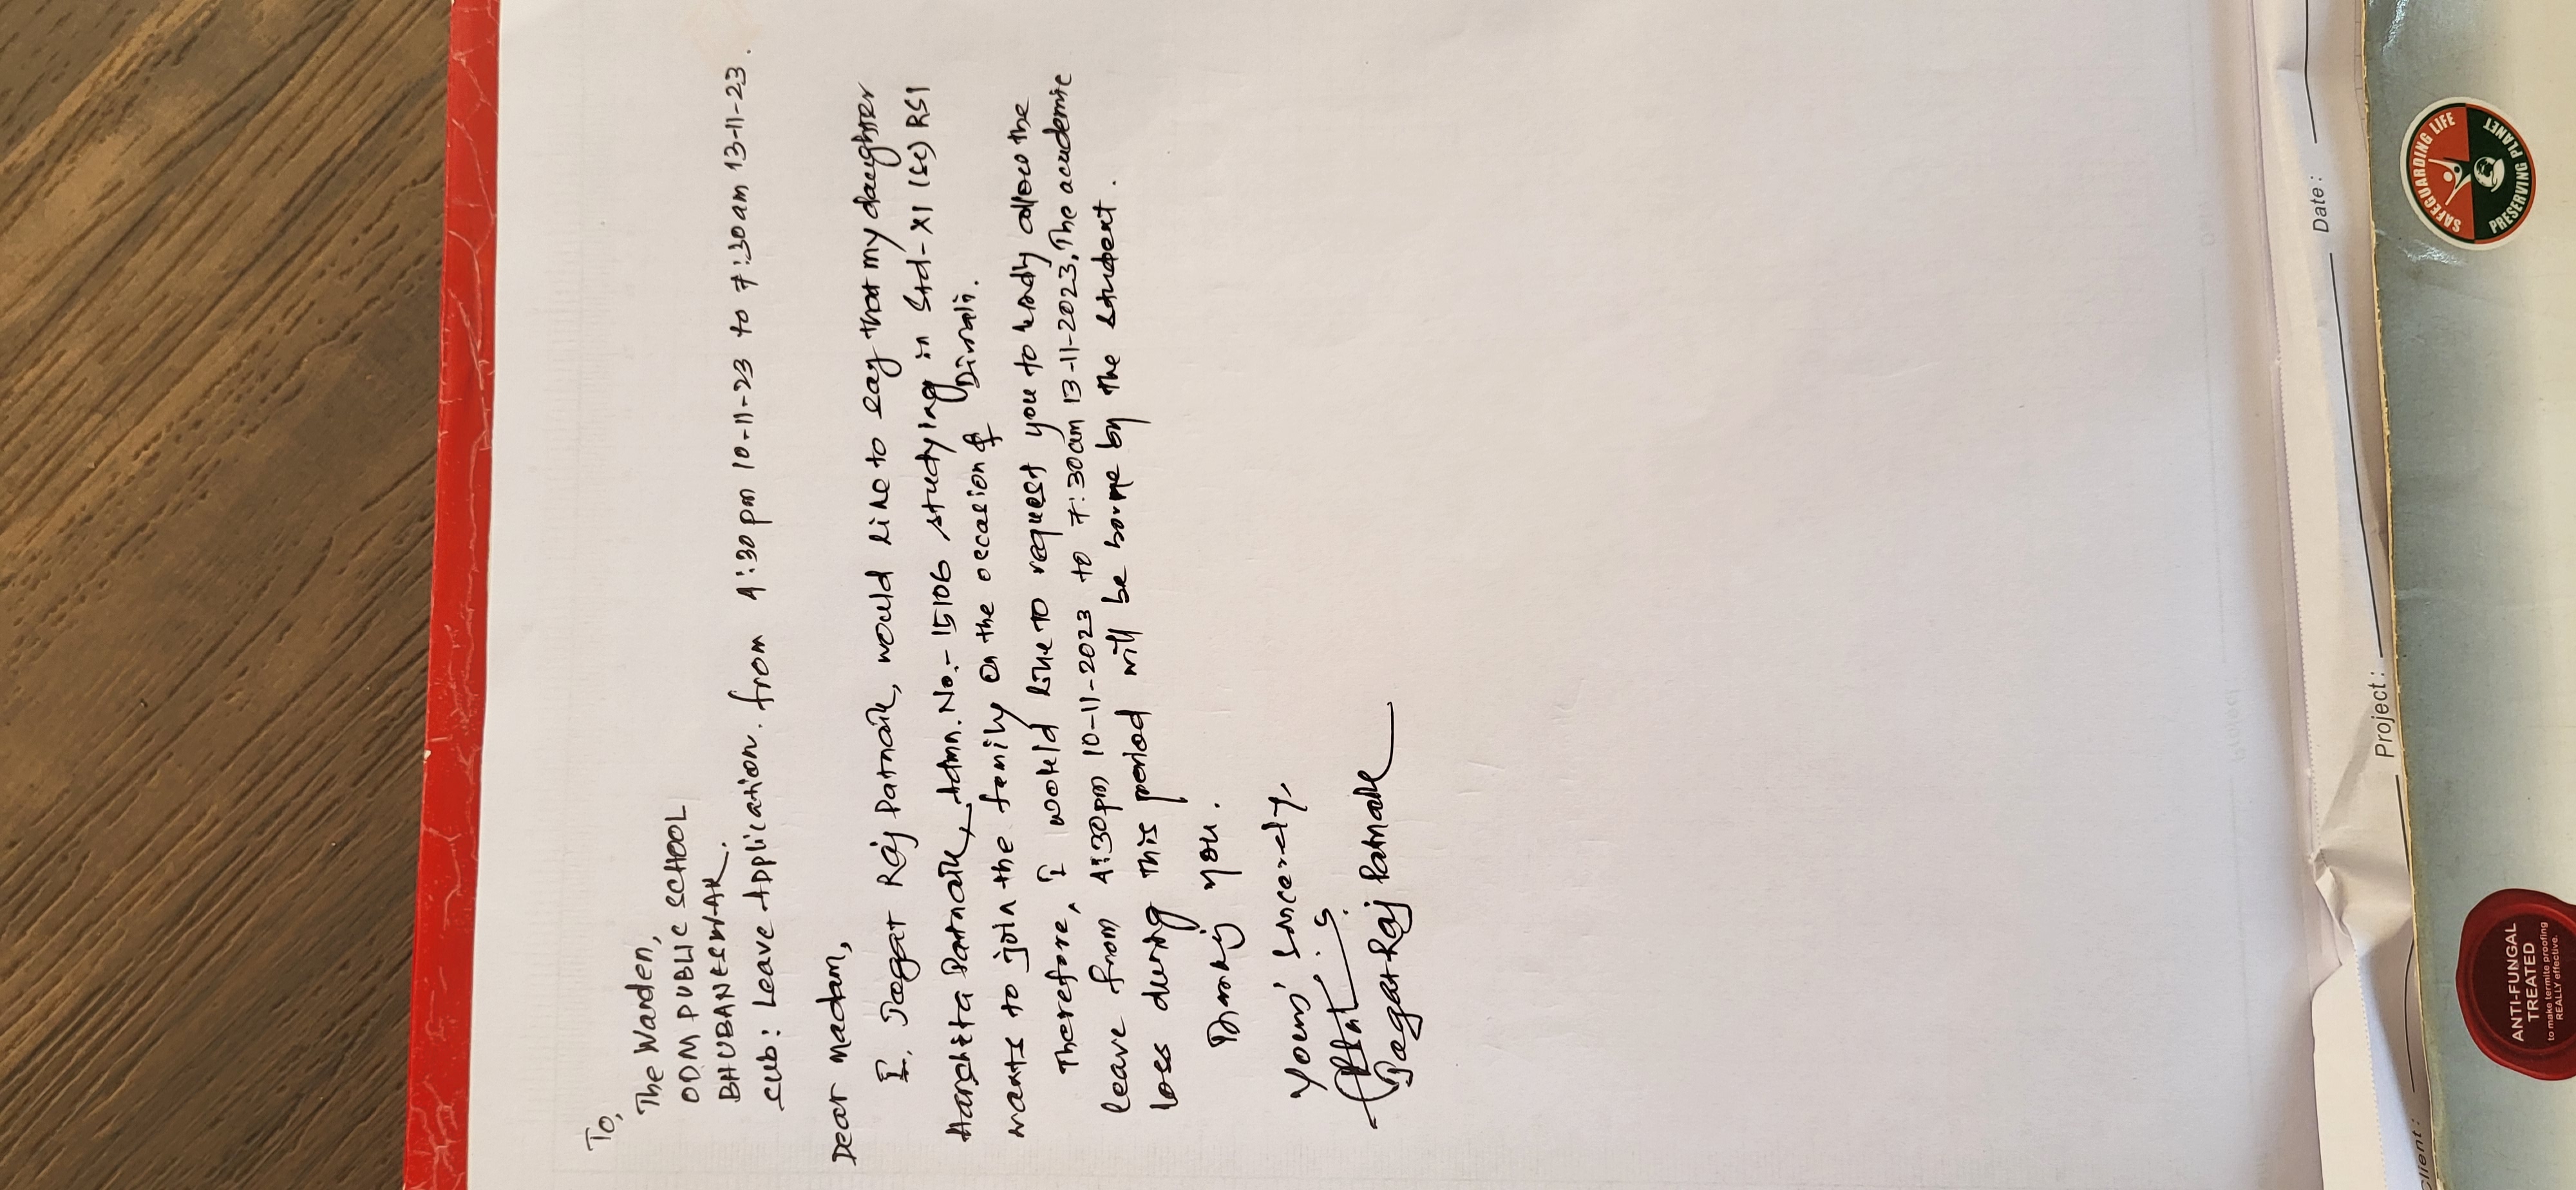 To,
The Warden,
ODM PUBLIC SCHOOL
BHUBANESWAR.
Sub: Leave Application. from 4:30pm 10-11-23 to 7:30am 13-11-23.
Dear Madam,
I, Jagat Raj Patnaik, would like to say that my daughter
Patnaik, Admn. No.- 15106 studying in Std- XI (Sc) RS1
wants to join the family on the occasion of Diwali.
Therefore, I would like to request you to kindly allow the
leave from 4:30pm 10-11-2023 to 7:30am 13-11-2023. The academic
loss during this period will be borne by the student.
Thanking you.
Yours' sincerely,
Jagat Raj Patnaik
Client:
Project:
Date:
SAFEGUARDING LIFE
PRESERVING PLANET
ANTI-FUNGAL
TREATED
to make termite proofing
REALLY effective.